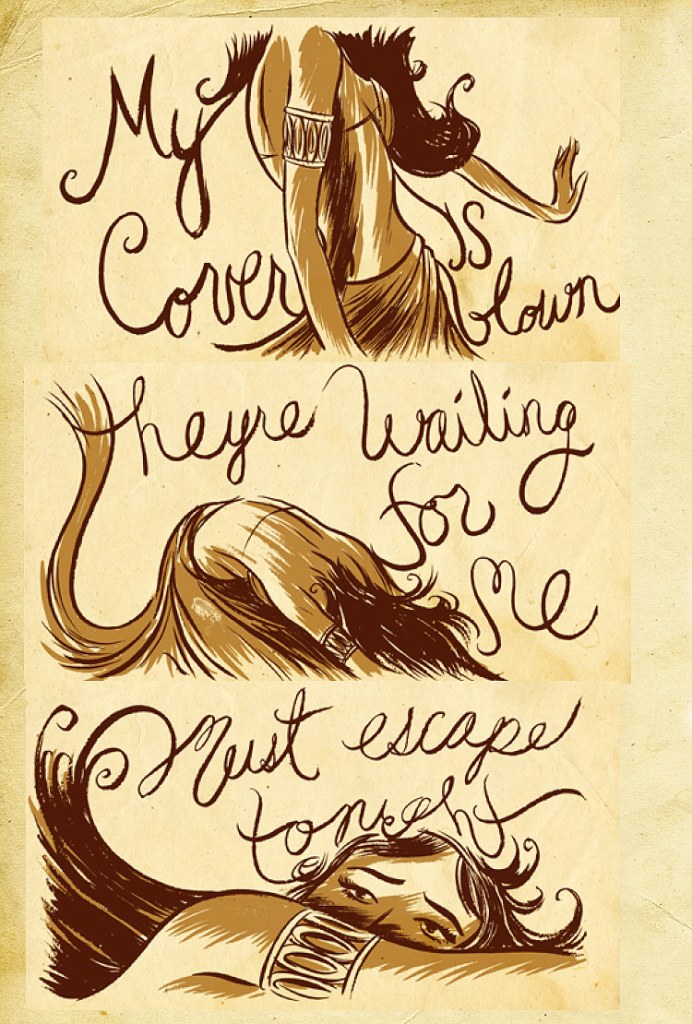 My
Cover is
blown
theyre Waiting
for
Me
Must escape
tonight